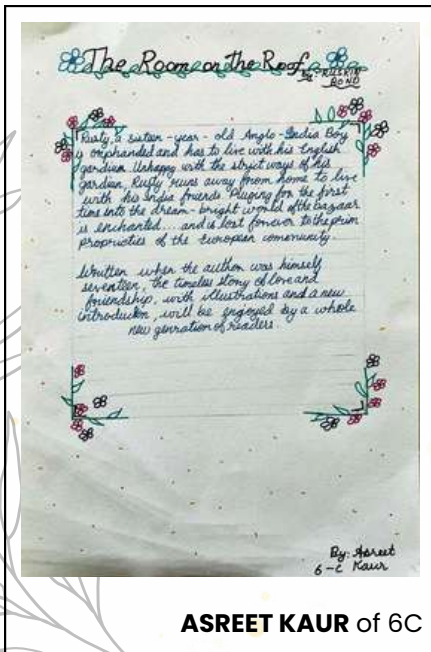 The Room on the Roof
By - RUSKIN
BOND
Rusty, a sixteen - year - old Anglo - India Boy
is orphanded and has to live with his English
gardien. Unhappy with the strict ways of his
gardien, Rusty runs away from home to live
with his India friends. Pluging for the first
time into the dream - bright world of the bazaar
is enchanted .... and is lost forever to the prim
propructies of the European community.
Written when the author was himself
seventeen, the timeless story of love and
friendship, with illustrations and a new
introduction, will be engoyed by a whole
new genration of readers.
By: Asreet
6-C Kaur
ASREET KAUR of 6C